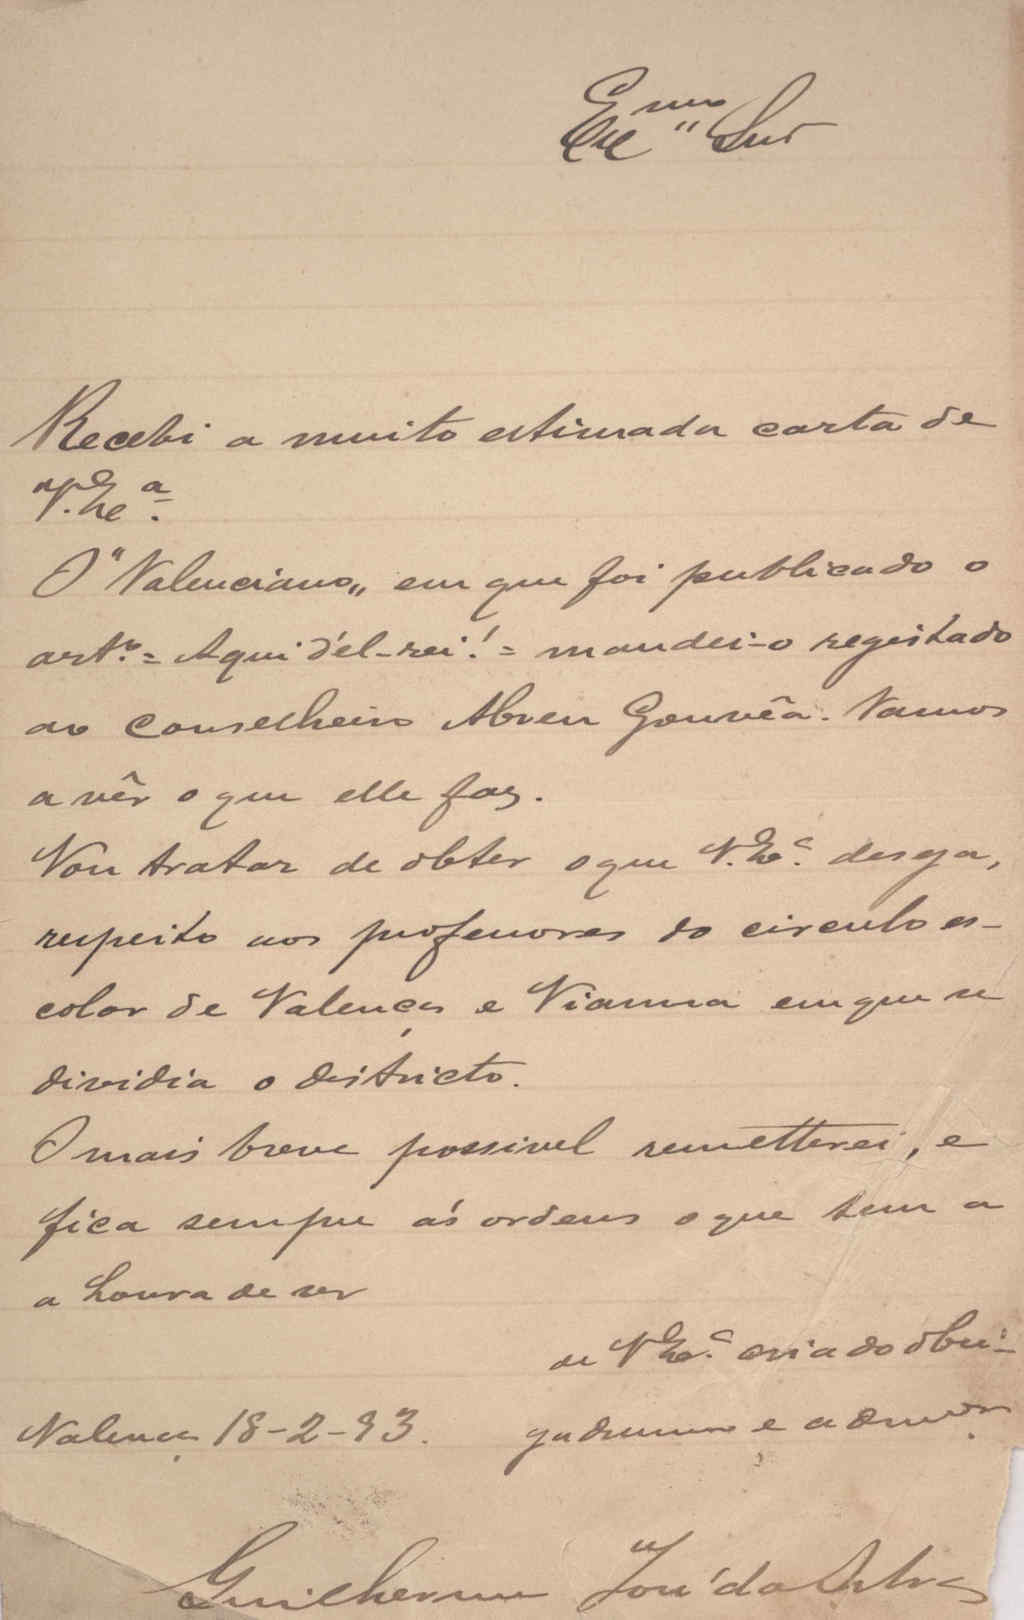 Ex.mo Snr
Recebi a muito estimada carta de
V. Ex.ª
O "Valenciano„ em que foi publicado o
art.º = Aqui d'él-rei! = mandei-o regeitado
ao conselheiro Abreu Gouvêa. Vamos
a vêr o que elle faz.
Vou tratar de obter o que V. Ex.ª deseja,
respeito aos professores do circulo es-
colar de Valença e Vianna em que se
dividia o districto.
O mais breve possivel remetterei, e
fica sempre ás ordens o que tem a
a honra de ser
de V Ex.ª criado obri-
Valença 18-2-93. gadissimo e admor.
Guilherme José da Silva